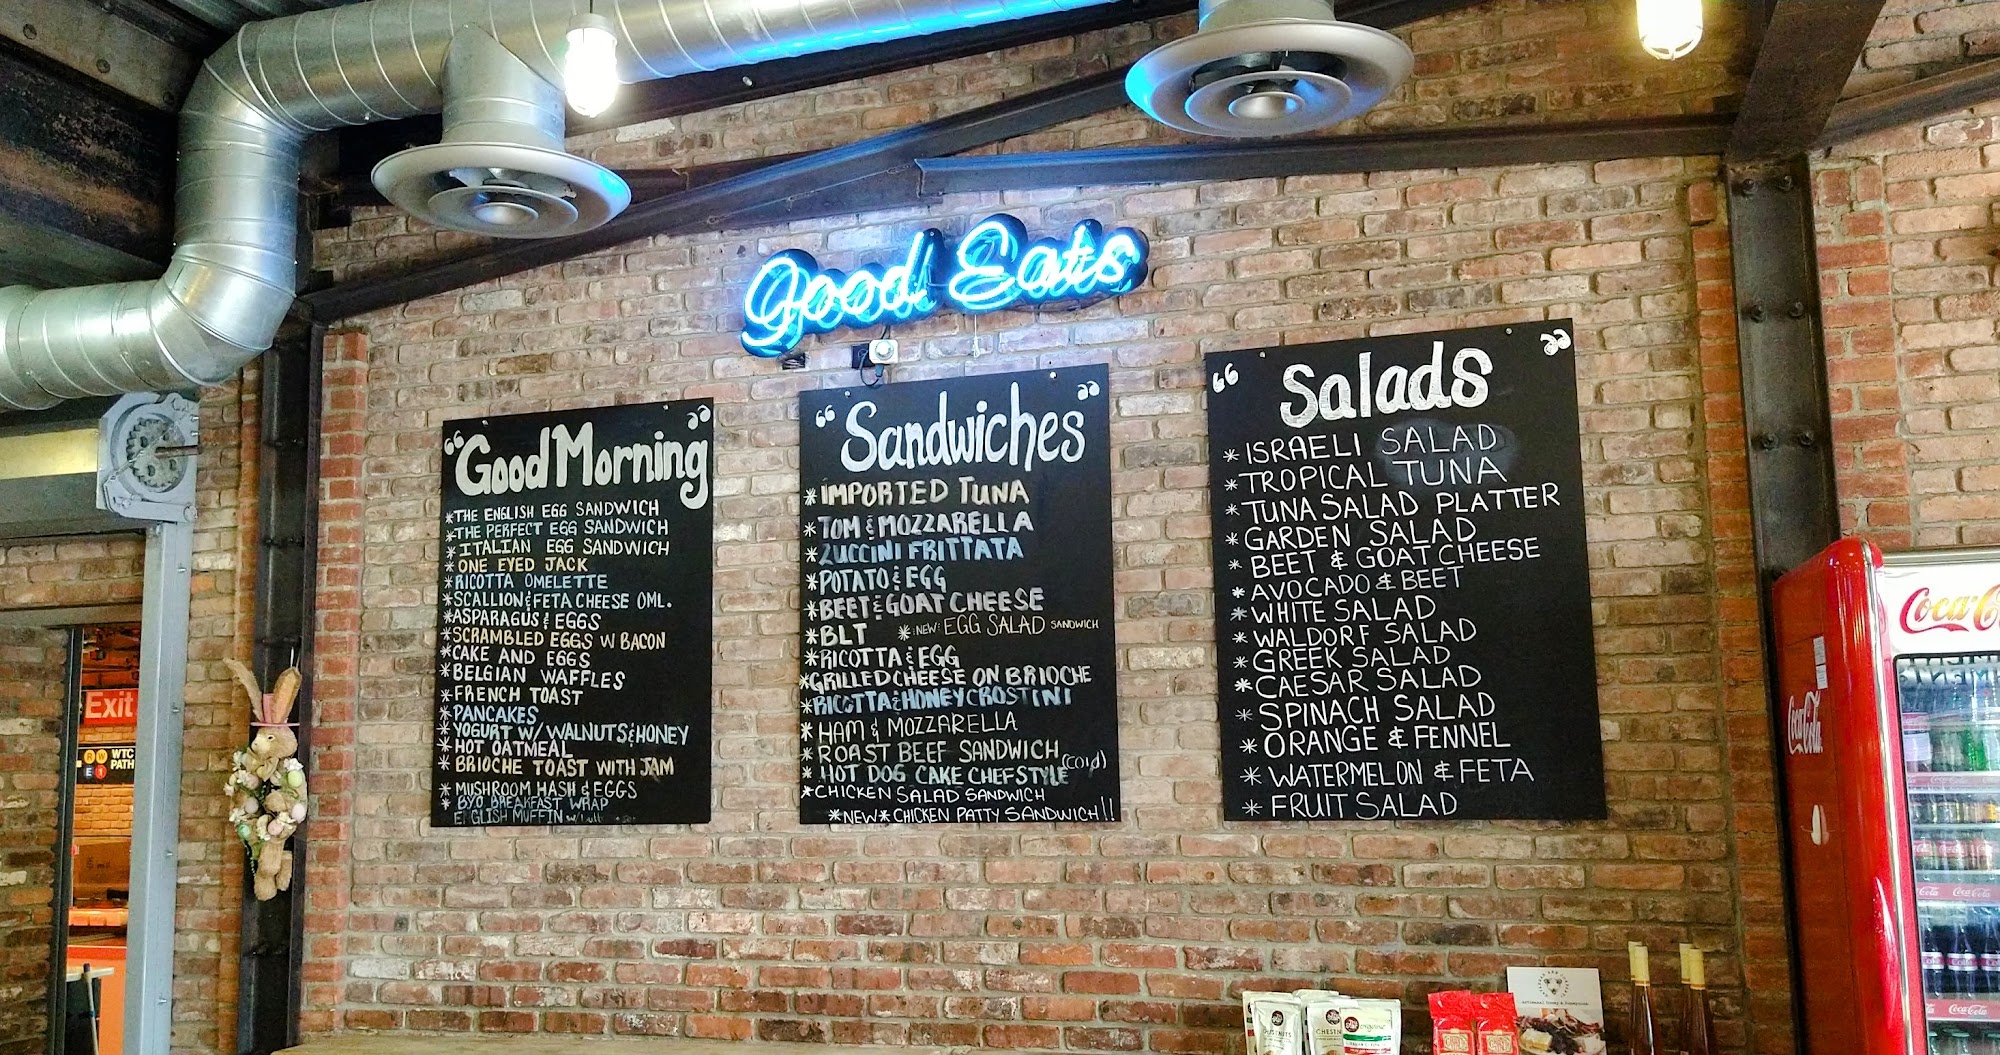 Good Eats
"Good Morning"
*THE ENGLISH EGG SANDWICH
*THE PERFECT EGG SANDWICH
*ITALIAN EGG SANDWICH
*ONE EYED JACK
*RICOTTA OMELETTE
*SCALLION & FETA CHEESE OML.
*ASPARAGUS & EGGS
*SCRAMBLED EGGS W BACON
*CAKE AND EGGS
*BELGIAN WAFFLES
*FRENCH TOAST
*PANCAKES
*YOGURT W/ WALNUTS & HONEY
*HOT OATMEAL
*BRIOCHE TOAST WITH JAM
*MUSHROOM HASH & EGGS
*BYO BREAKFAST WRAP
ENGLISH MUFFIN
"Sandwiches"
*IMPORTED TUNA
*TOM & MOZZARELLA
*ZUCCINI FRITTATA
*POTATO & EGG
*BEET & GOAT CHEESE
*BLT *:NEW: EGG SALAD SANDWICH
*RICOTTA & EGG
*GRILLED CHEESE ON BRIOCHE
*RICOTTA & HONEY CROSTINI
*HAM & MOZZARELLA
*ROAST BEEF SANDWICH (COld)
*HOT DOG CAKE CHEF STYLE
*CHICKEN SALAD SANDWICH
*NEW* CHICKEN PATTY SANDWICH!!
"Salads"
*ISRAELI SALAD
*TROPICAL TUNA
*TUNA SALAD PLATTER
*GARDEN SALAD
*BEET & GOAT CHEESE
*AVOCADO & BEET
*WHITE SALAD
*WALDORF SALAD
*GREEK SALAD
*CAESAR SALAD
*SPINACH SALAD
*ORANGE & FENNEL
*WATERMELON & FETA
*FRUIT SALAD
Exit
R W WTC
E 1 PATH
Coca-Cola
Coca-Cola
Coca-Cola
Coca-Cola
Coca-Cola
CHESTNUTS
CHESTN
organic